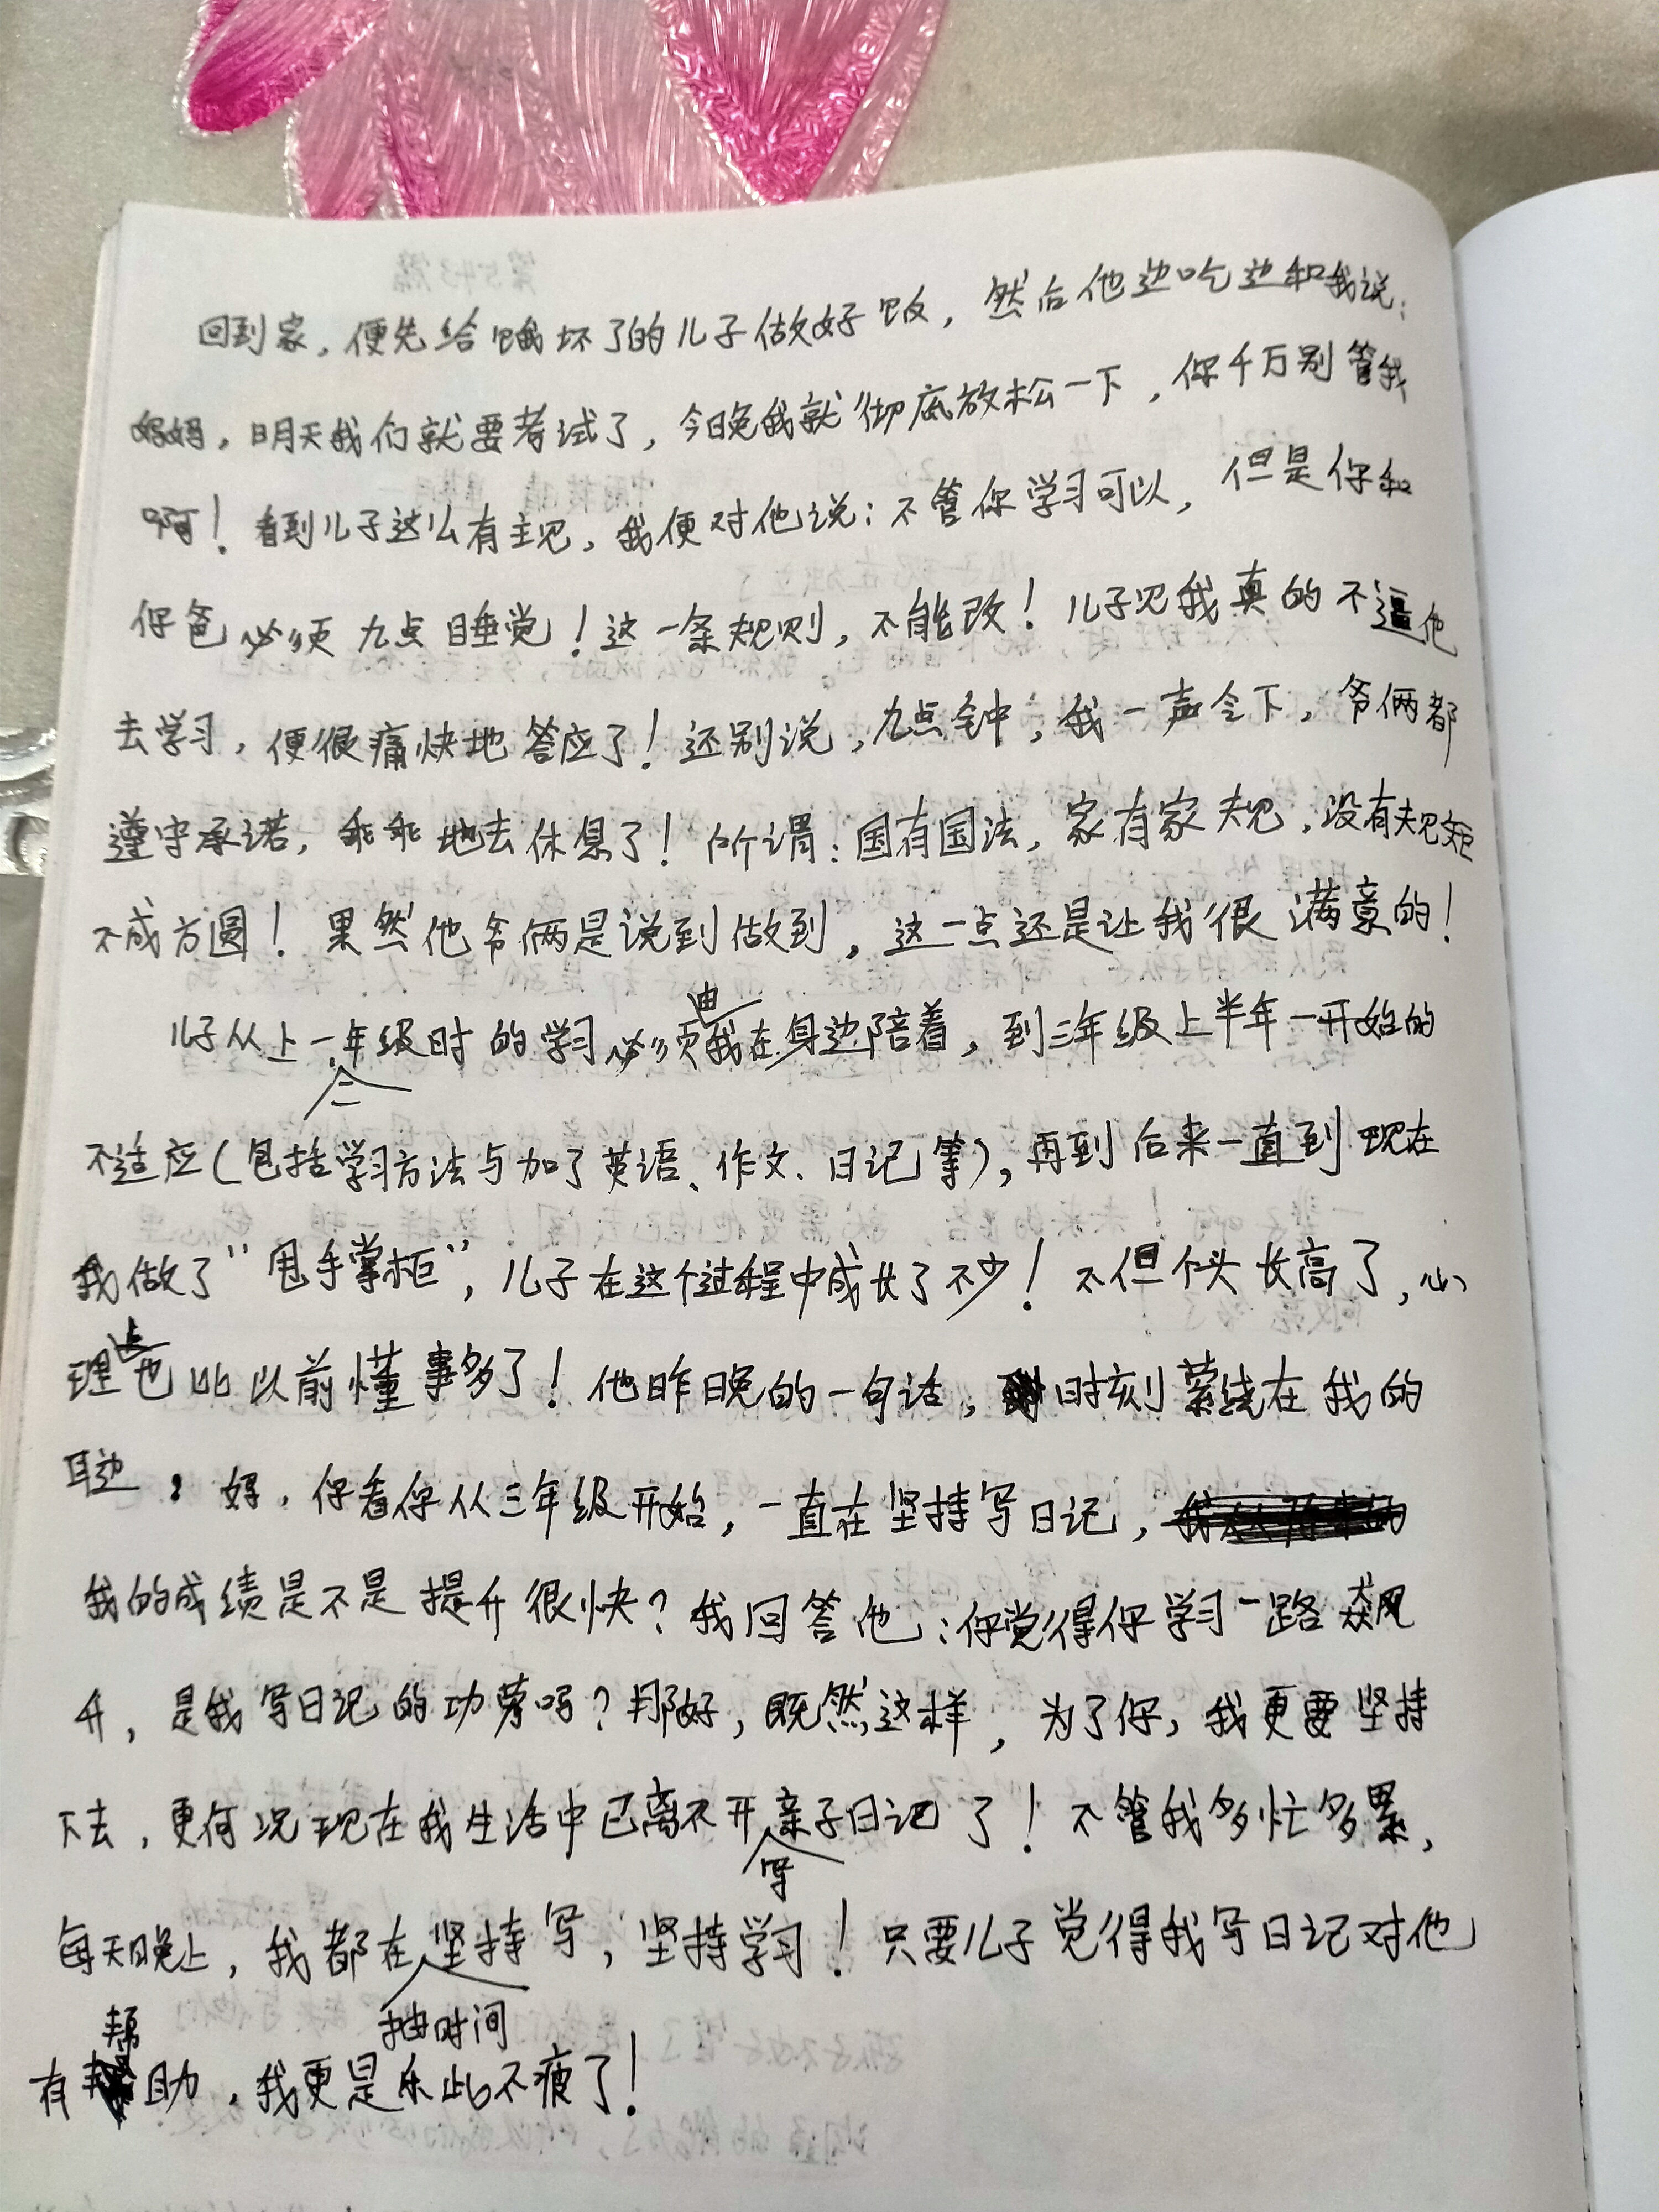 回到家，便先给饿坏了的儿子做好饭，然后他边吃边和我说：
妈妈，明天我们就要考试了，今晚我就彻底放松一下，你千万别管我
啊！看到儿子这么有主见，我便对他说：不管你学习可以，但是你和
你爸必须九点睡觉！这一条规则，不能改！儿子见我真的不逼他
去学习，便很痛快地答应了！还别说，九点钟，我一声令下，爷俩都
遵守承诺，乖乖地去休息了！所谓：国有国法，家有家规，没有规矩
不成方圆！果然他爷俩是说到做到，这一点还是让我很满意的！
儿子从上一、二年级时的学习必须由我在身边陪着，到三年级上半年一开始的
不适应（包括学习方法与加了英语、作文、日记等），再到后来一直到现在
我做了“甩手掌柜”，儿子在这个过程中成长了不少！不但个头长高了，心
理上也比以前懂事多了！他昨晚的一句话，时刻萦绕在我的
耳边：妈，你看你从三年级开始，一直在坚持写日记，
我的成绩是不是提升很快？我回答他：你觉得你学习一路飙
升，是我写日记的功劳吗？那好，既然这样，为了你，我更要坚持
下去，更何况现在我生活中已离不开写亲子日记了！不管我多忙多累，
每天晚上，我都在抽时间坚持写，坚持学习！只要儿子觉得我写日记对他
有帮助，我更是乐此不疲了！